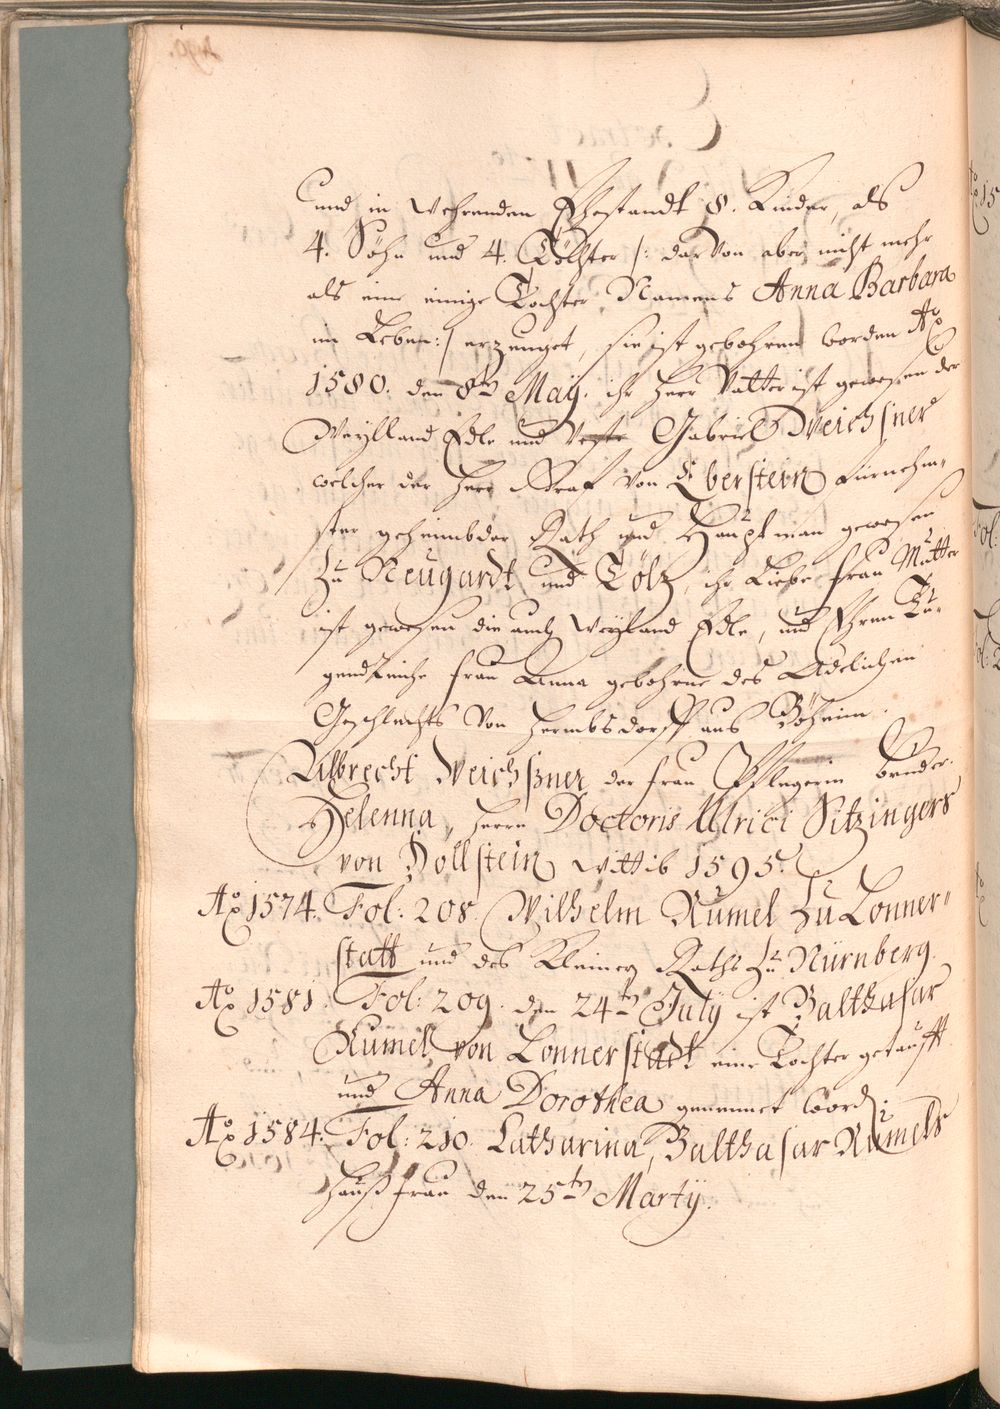 und in wehrenden Ehestandt 8. Kinder, als
4. Söhn und 4. Töchter /: darvon aber nicht mehr
als eine einige Tochter Namens Anna Barbara
im Leben :/ erzeuget, sie ist gebohren worden Aō
1580. den 8tn Maÿ. ihr Herr Vatter ist gewesen der
Weylland Edle und Veste Gabriel Weichsner
welcher der Herr Graf von Eberstein fürnehm-
ster geheimbder Rath und Hauptman gewesen
zu Neugardt und Tölz, ihr Liebe frau Mutter
ist gewesen die auch Weyland Edle, und Ehren Tu-
gendreiche frau Anna gebohrne des Adelichen
Geschlechts von Hermbsdorff aus Böheim.
Albrecht Weichsner der frau Pflegerin bruder.
Helenna, Herrn Doctoris Ulrici Sitzingers
von Hollstein wittib 1595.
Aō 1574. Fol: 208. Wilhelm Rumel zu Lonner-
statt und des Kleinern Raths zu Nürnberg.
Aō 1581. Fol: 209. den 24tn July ist Balthasar
Rumel von Lonnerstadt eine Tochter getaufft
und Anna Dorothea genennet word.
Aō 1584. Fol: 210. Catharina, Balthasar Rumels
Haußfrau den 25tn Martÿ.
Fol: